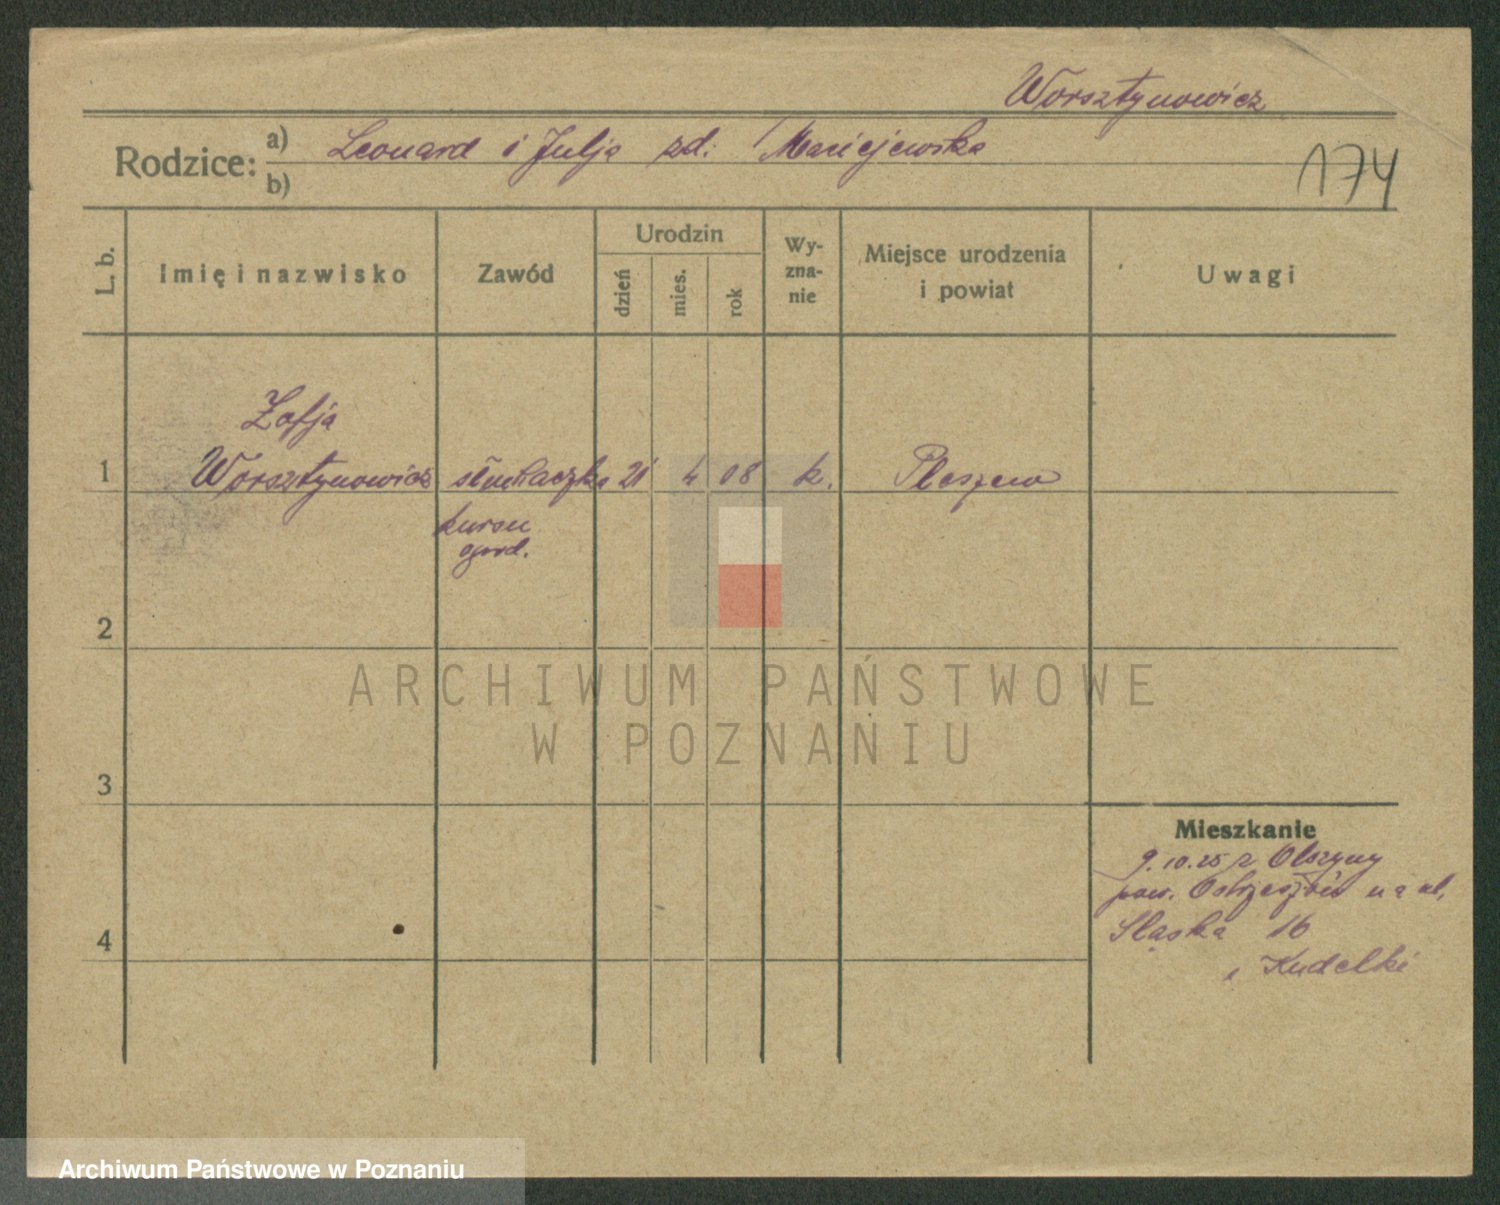 Worsztynowicz
Rodzice:
a) Leonard i Julja zd. Maciejewska
b)
174
L. b.
Imię i nazwisko
Zawód
Urodzin
dzień
mies.
rok
Wy-
zna-
nie
Miejsce urodzenia
i powiat
Uwagi
Zofja
1 Worsztynowicz słuchaczka 21 4 08 k. Pleszew
kursu
ogrod.
2
ARCHIWUM PAŃSTWOWE
W POZNANIU
3
Mieszkanie
9.10.25 z Olszyny
pow. Ostrzeszów na ul.
4
Śląska 16
Kudelki
Archiwum Państwowe w Poznaniu